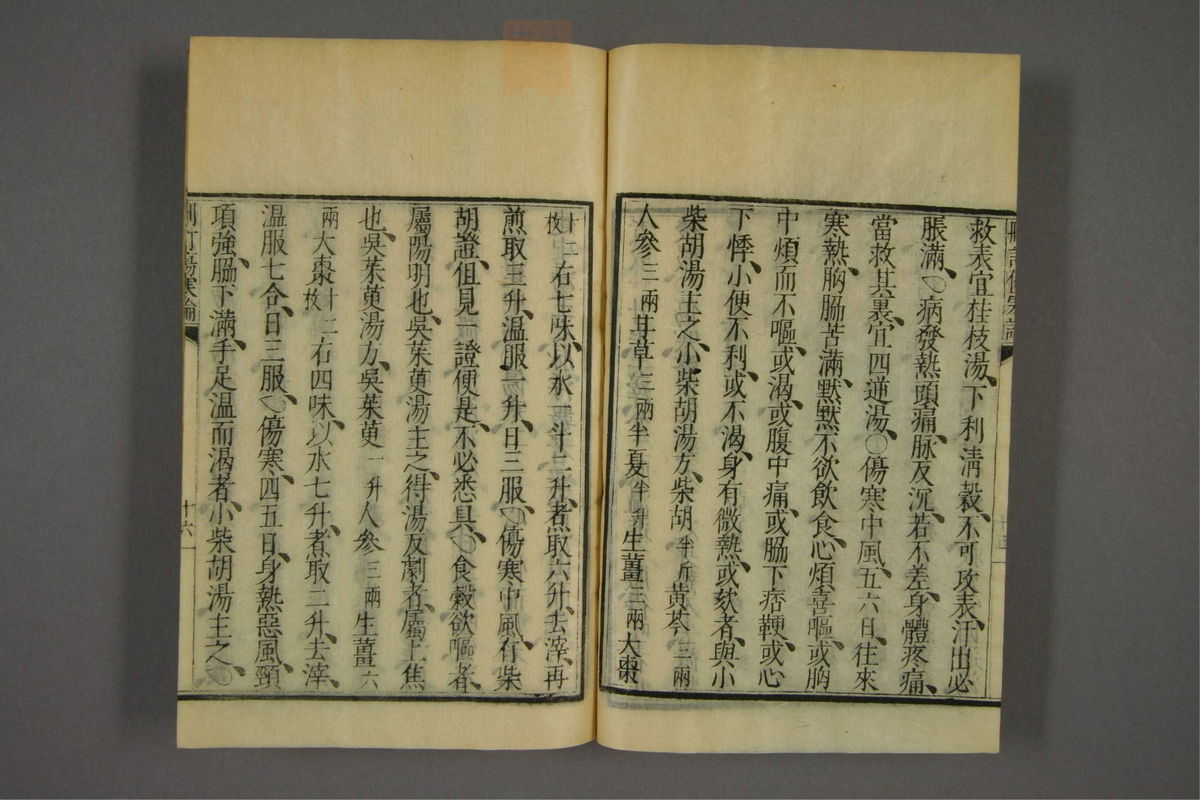 救表宜桂枝湯、下利清穀、不可攻表、汗出必
脹滿、○病發熱頭痛、脉反沉、若不差、身體疼痛、
當救其裏、宜四逆湯、○傷寒中風、五六日、往來
寒熱、胸脇苦滿、默默不欲飲食、心煩喜嘔、或胸
中煩而不嘔、或渴、或腹中痛、或脇下痞鞕、或心
下悸、小便不利、或不渴、身有微熱、或欬者、與小
柴胡湯主之、小柴胡湯方、柴胡半斤黃芩三兩
人參三兩甘草三兩半夏半升生薑三兩大棗
十二枚右七味、以水一斗二升、煮取六升、去滓、再
煎取三升、溫服一升、日三服、○傷寒中風、有柴
胡證、但見一證便是、不必悉具、○食穀欲嘔者、
屬陽明也、吳茱萸湯主之、得湯反劇者、屬上焦
也、吳茱萸湯方、吳茱萸一升人參三兩生薑六
兩大棗十二枚右四味、以水七升、煮取二升、去滓、
溫服七合、日三服、○傷寒、四五日、身熱惡風、頸
項強、脇下滿、手足溫而渴者、小柴胡湯主之、○
十六